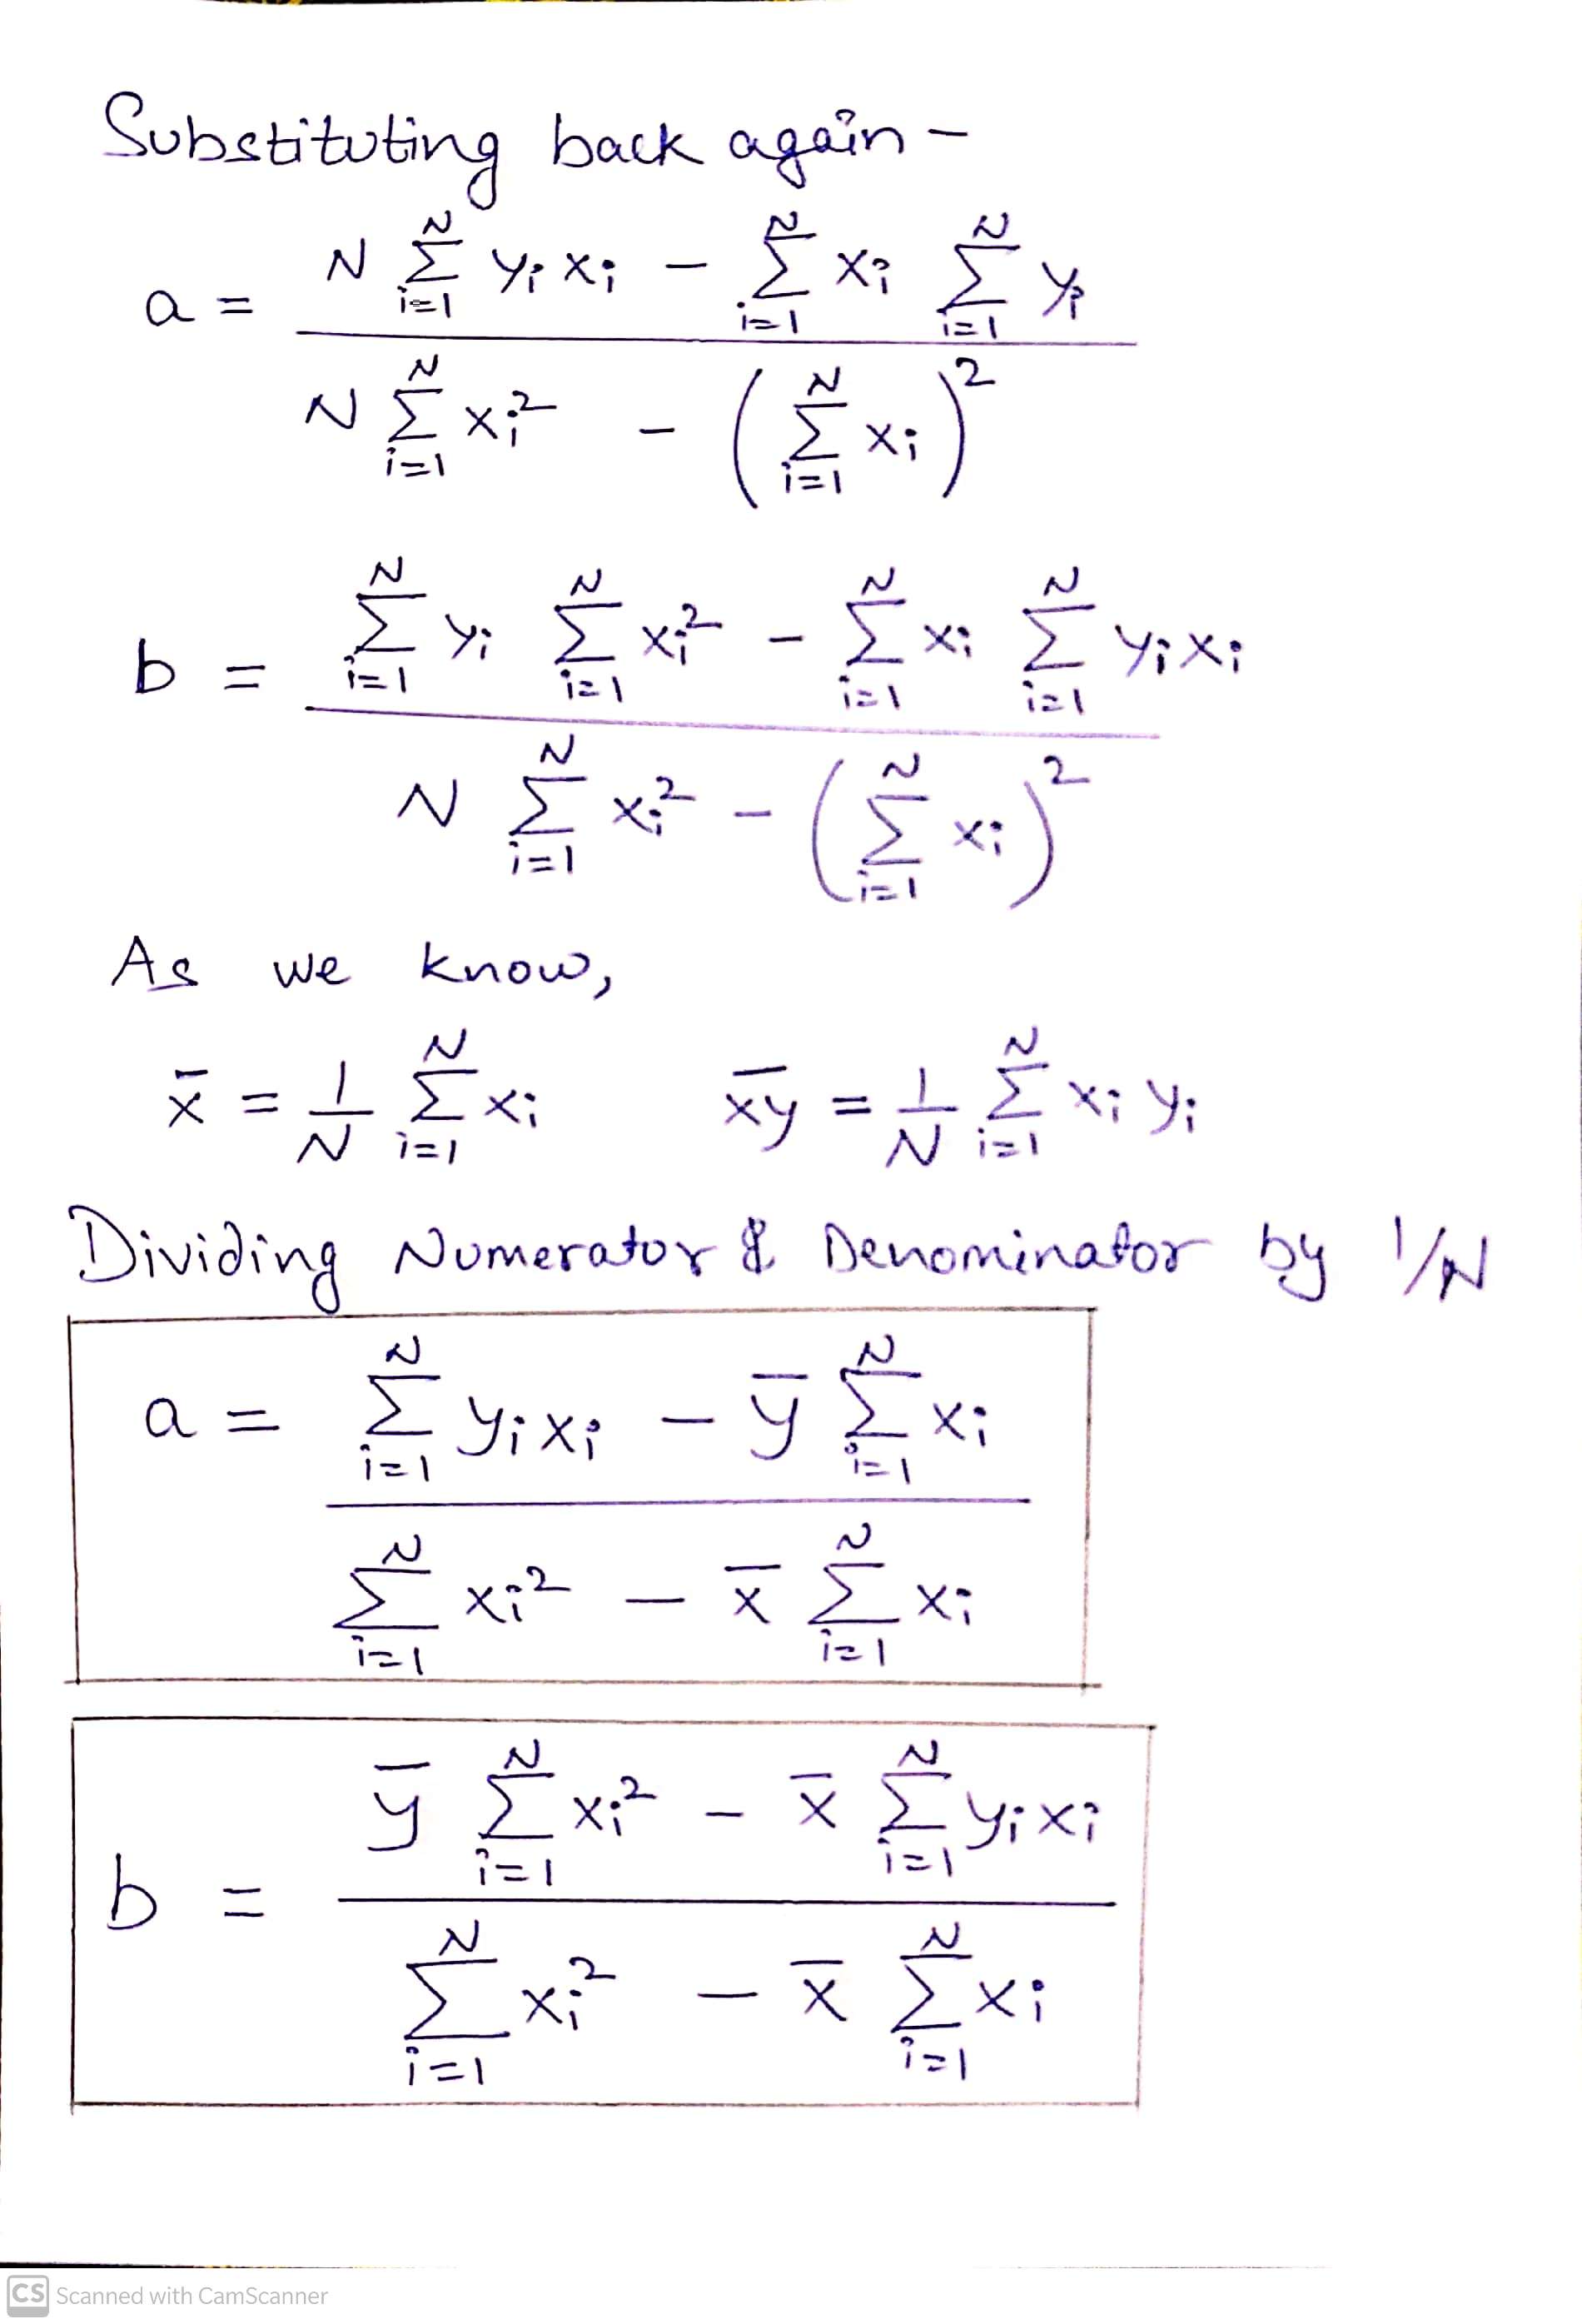 Substituting back again -
a = \frac{N \sum_{i=1}^{N} y_i x_i - \sum_{i=1}^{N} x_i \sum_{i=1}^{N} y_i}{N \sum_{i=1}^{N} x_i^2 - \left( \sum_{i=1}^{N} x_i \right)^2}
b = \frac{\sum_{i=1}^{N} y_i \sum_{i=1}^{N} x_i^2 - \sum_{i=1}^{N} x_i \sum_{i=1}^{N} y_i x_i}{N \sum_{i=1}^{N} x_i^2 - \left( \sum_{i=1}^{N} x_i \right)^2}
As we know,
\bar{x} = \frac{1}{N} \sum_{i=1}^{N} x_i \quad \overline{xy} = \frac{1}{N} \sum_{i=1}^{N} x_i y_i
Dividing Numerator & Denominator by 1/N
a = \frac{\sum_{i=1}^{N} y_i x_i - \bar{y} \sum_{i=1}^{N} x_i}{\sum_{i=1}^{N} x_i^2 - \bar{x} \sum_{i=1}^{N} x_i}
b = \frac{\bar{y} \sum_{i=1}^{N} x_i^2 - \bar{x} \sum_{i=1}^{N} y_i x_i}{\sum_{i=1}^{N} x_i^2 - \bar{x} \sum_{i=1}^{N} x_i}
CS Scanned with CamScanner